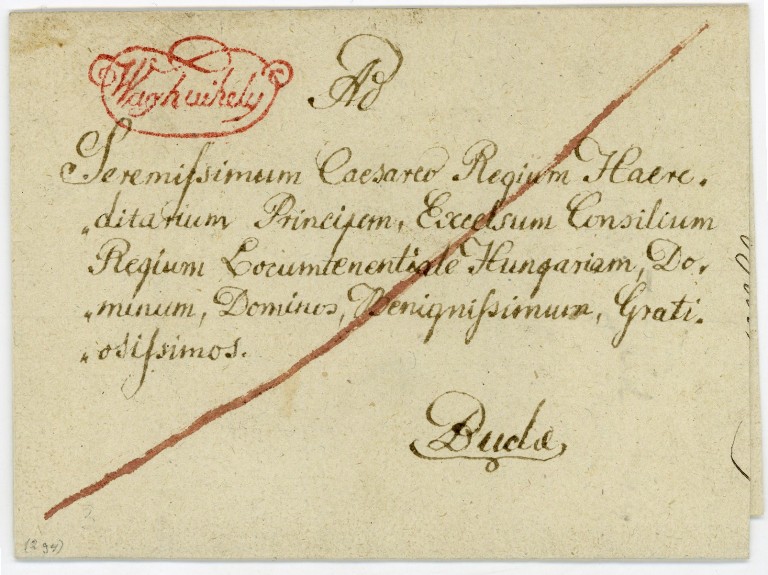 Waghuihely
Ad
Seremissimum Caesareo Regium Haere.
ditarium Principem, Excelsum Consilium
Regium Locumtenentiale Hungariam, Do,
minum, Dominos, Benignissimum, Grati.
osissimos.
Budæ
(294)